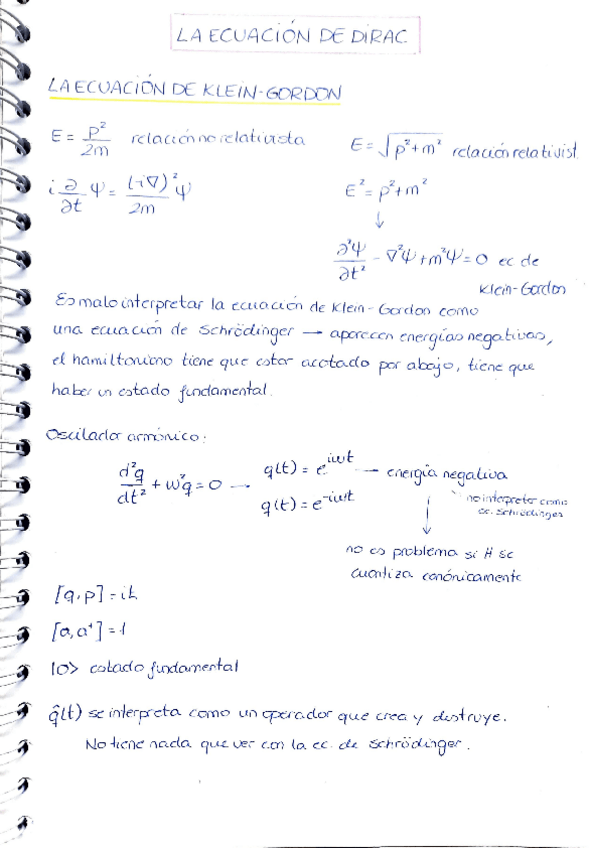 LA ECUACIÓN DE DIRAC
LA ECUACIÓN DE KLEIN-GORDON
E = p²/2m relación no relativista
E = √(p²+m²) relación relativist
i ∂/∂t Ψ = (-i∇)²/2m Ψ
E² = p²+m²
↓
∂²Ψ/∂t² - ∇²Ψ + m²Ψ = 0 ec de
Klein-Gordon
Es malo interpretar la ecuación de Klein-Gordon como
una ecuación de Schrödinger → aparecen energías negativas,
el hamiltoniano tiene que estar acotado por abajo, tiene que
haber un estado fundamental.
Oscilador armónico:
d²q/dt² + ω²q = 0 → q(t) = e^{iωt} → energía negativa
q(t) = e^{-iωt}
no interpretar como
ec. Schrödinger
↓
no es problema si H se
cuantiza canónicamente
[q,p] = iħ
[a,a⁺] = 1
|0> estado fundamental
q̂(t) se interpreta como un operador que crea y destruye.
No tiene nada que ver con la ec. de Schrödinger.